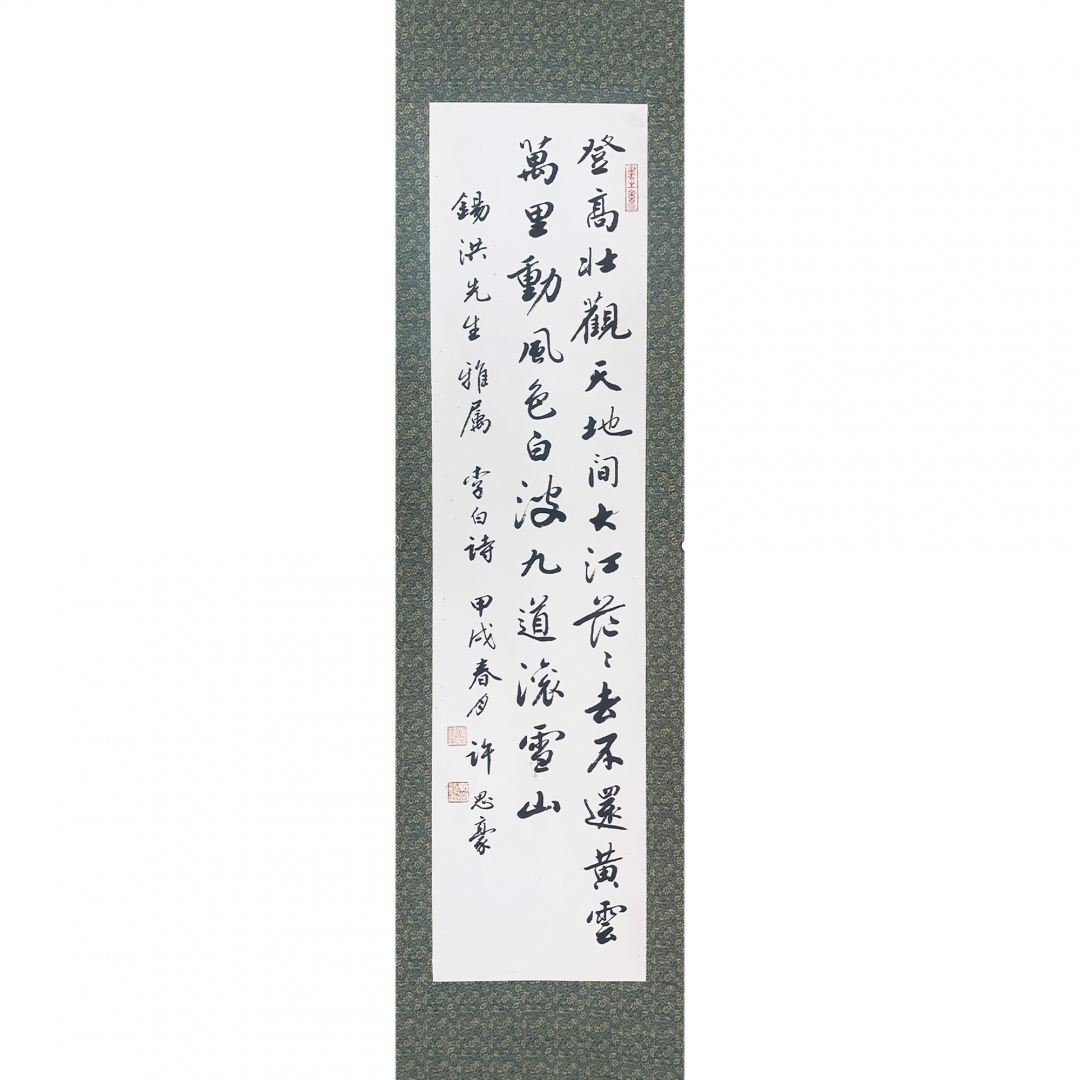 登高壯觀天地间大江茫〻去不還黄雲
萬里動風色白波九道滾雪山
錫洪先生雅属 李白詩 甲戌春月 許思豪